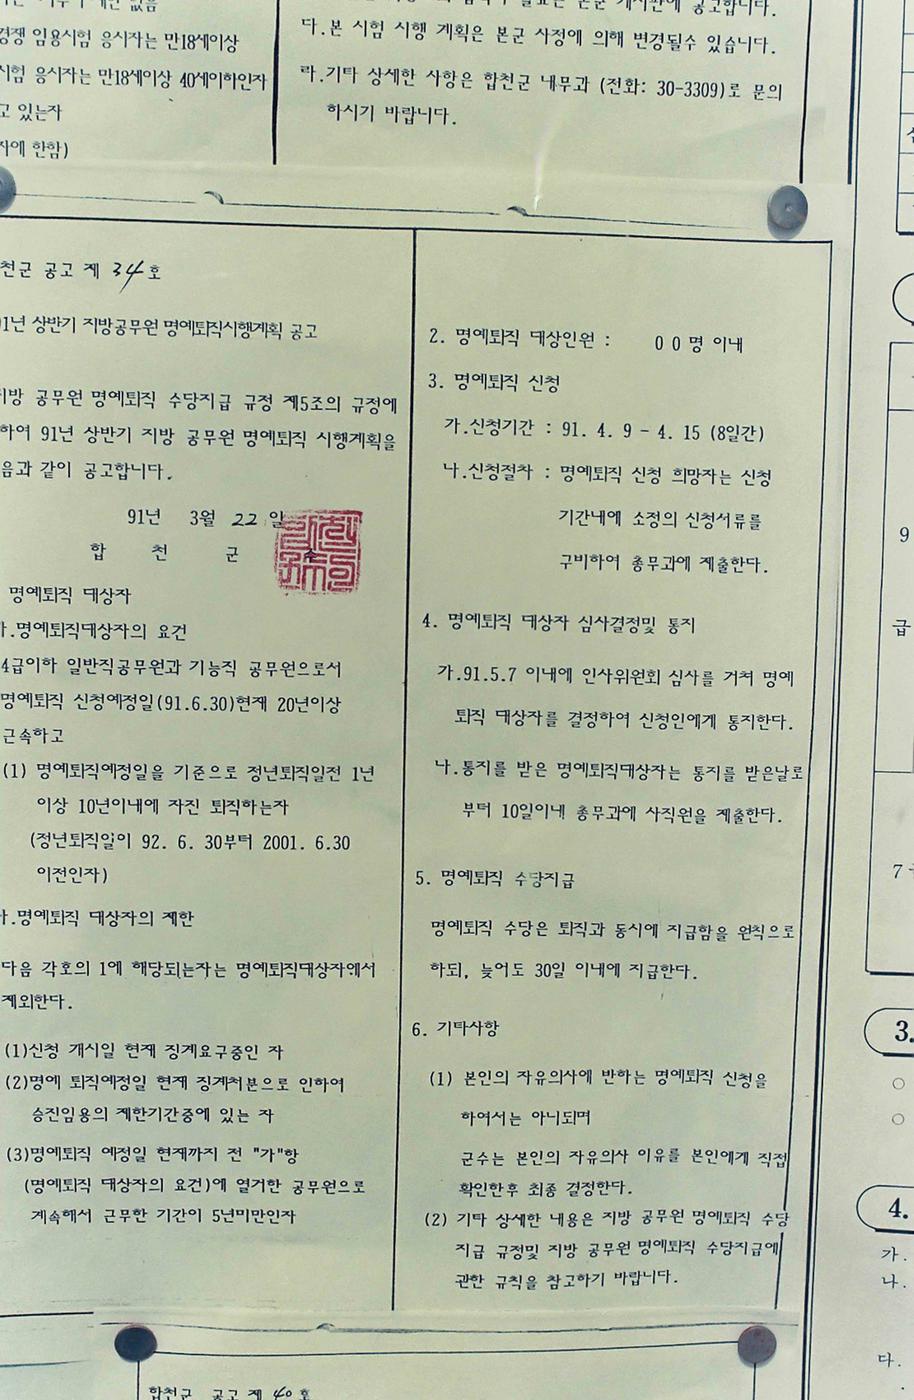 경쟁 임용시험 응시자는 만18세이상
시험 응시자는 만18세이상 40세이하인자
고 있는자
자에 한함)
다.본 시험 시행 계획은 본군 사정에 의해 변경될수 있습니다.
라.기타 상세한 사항은 합천군 내무과 (전화: 30-3309)로 문의
하시기 바랍니다.
천군 공고 제 34 호
91년 상반기 지방공무원 명예퇴직시행계획 공고
지방 공무원 명예퇴직 수당지급 규정 제5조의 규정에
하여 91년 상반기 지방 공무원 명예퇴직 시행계획을
음과 같이 공고합니다.
91년 3월 22 일
합 천 군 수
명예퇴직 대상자
가.명예퇴직대상자의 요건
4급이하 일반직공무원과 기능직 공무원으로서
명예퇴직 신청예정일(91.6.30)현재 20년이상
근속하고
(1) 명예퇴직예정일을 기준으로 정년퇴직일전 1년
이상 10년이내에 자진 퇴직하는자
(정년퇴직일이 92. 6. 30부터 2001. 6.30
이전인자)
나.명예퇴직 대상자의 제한
다음 각호의 1에 해당되는자는 명예퇴직대상자에서
제외한다.
(1)신청 개시일 현재 징계요구중인 자
(2)명예 퇴직예정일 현재 징계처분으로 인하여
승진임용의 제한기간중에 있는 자
(3)명예퇴직 예정일 현재까지 전 "가"항
(명예퇴직 대상자의 요건)에 열거한 공무원으로
계속해서 근무한 기간이 5년미만인자
2. 명예퇴직 대상인원 : 0 0 명 이내
3. 명예퇴직 신청
가.신청기간 : 91. 4. 9 - 4. 15 (8일간)
나.신청절차 : 명예퇴직 신청 희망자는 신청
기간내에 소정의 신청서류를
구비하여 총무과에 제출한다.
4. 명예퇴직 대상자 심사결정및 통지
가.91.5.7 이내에 인사위원회 심사를 거쳐 명예
퇴직 대상자를 결정하여 신청인에게 통지한다.
나.통지를 받은 명예퇴직대상자는 통지를 받은날로
부터 10일이내 총무과에 사직원을 제출한다.
5. 명예퇴직 수당지급
명예퇴직 수당은 퇴직과 동시에 지급함을 원칙으로
하되, 늦어도 30일 이내에 지급한다.
6. 기타사항
(1) 본인의 자유의사에 반하는 명예퇴직 신청을
하여서는 아니되며
군수는 본인의 자유의사 이유를 본인에게 직접
확인한후 최종 결정한다.
(2) 기타 상세한 내용은 지방 공무원 명예퇴직 수당
지급 규정및 지방 공무원 명예퇴직 수당지급에
관한 규칙을 참고하기 바랍니다.
합천군 공고 제 40 호
9
급
7
3.
○
○
4.
가.
나.
다.